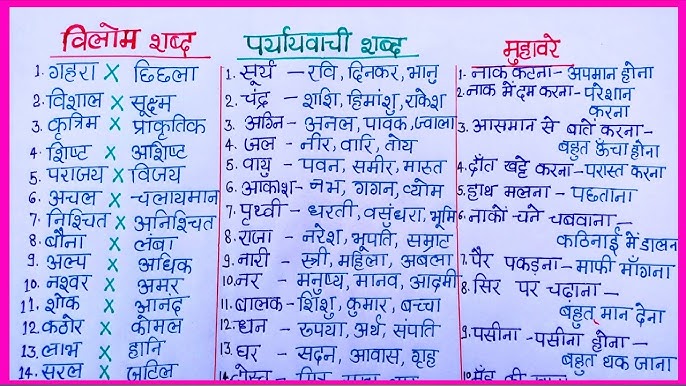 विलोम शब्द
1. गहरा X छिछला
2. विशाल X सूक्ष्म
3. कृत्रिम X प्राकृतिक
4. शिष्ट X अशिष्ट
5. पराजय X विजय
6. अचल X चलायमान
7. निश्चित X अनिश्चित
8. बौना X लंबा
9. अल्प X अधिक
10. नश्वर X अमर
11. शोक X आनंद
12. कठोर X कोमल
13. लाभ X हानि
14. सरल X जटिल
पर्यायवाची शब्द
1. सूर्य – रवि, दिनकर, भानु
2. चंद्र – शशि, हिमांशु, राकेश
3. अग्नि – अनल, पावक, ज्वाला
4. जल – नीर, वारि, तोय
5. वायु – पवन, समीर, मारूत
6. आकाश – नभ, गगन, व्योम
7. पृथ्वी – धरती, वसुंधरा, भूमि
8. राजा – नरेश, भूपति, सम्राट
9. नारी – स्त्री, महिला, अबला
10. नर – मनुष्य, मानव, आदमी
11. बालक – शिशु, कुमार, बच्चा
12. धन – रुपया, अर्थ, संपाति
13. घर – सदन, आवास, गृह
मुहावरे
1. नाक कटना – अपमान होना
2. नाक में दम करना – परेशान
करना
3. आसमान से बातें करना –
बहुत ऊँचा होना
4. दाँत खट्टे करना – परास्त करना
5. हाथ मलना – पछताना
6. नाकों चने चबवाना –
कठिनाई में डालन
7. पैर पकड़ना – माफी माँगना
8. सिर पर चढ़ाना –
बहुत मान देना
9. पसीना – पसीना होना –
बहुत थक जाना